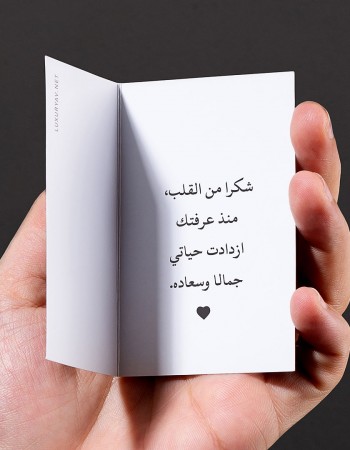 شكرا من القلب،
منذ عرفتك
ازدادت حياتي
جمالا وسعاده.